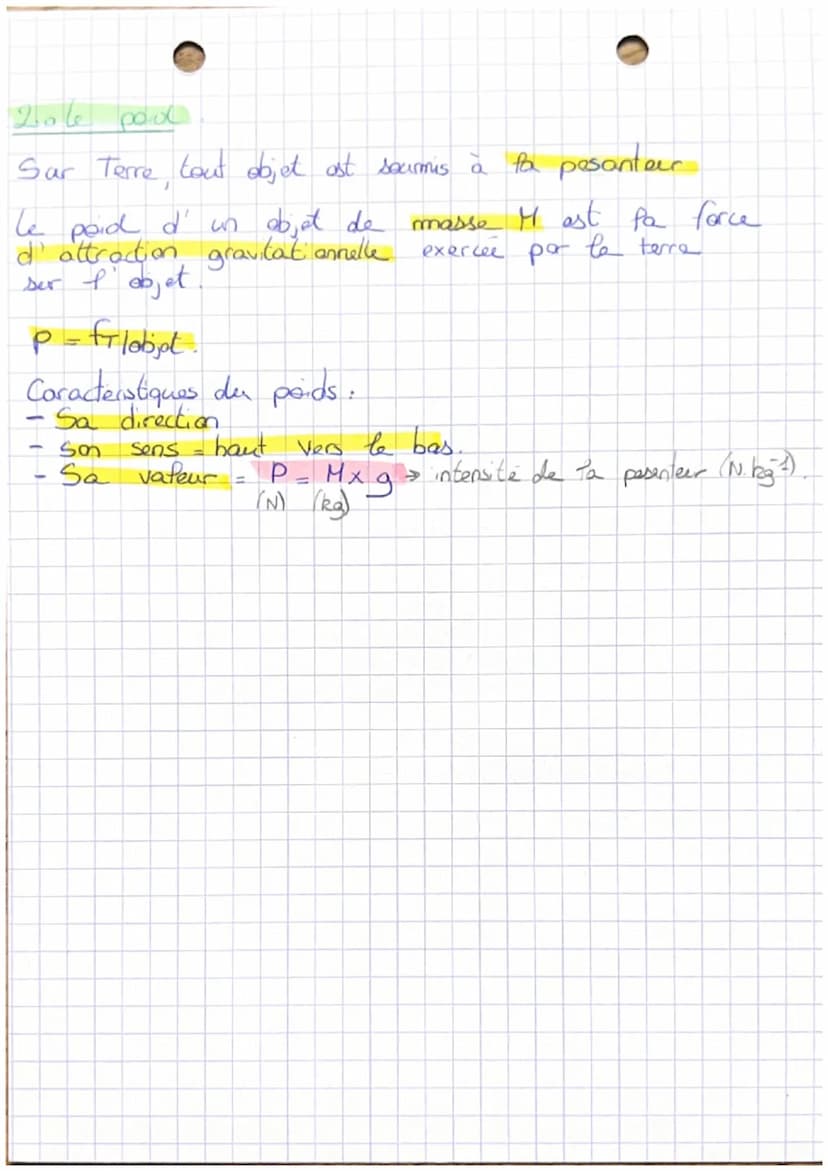 2. le poid.
Sur Terre, tout objet est soumis à la pesanteur
Le poid d'un objet de masse M est la force
d'attraction gravitationnelle exercée par la terre
sur l'objet.
P = fT/objet.
Caractéristiques du poids :
- Sa direction
- Son sens = haut vers le bas.
- Sa valeur = P = M x g → intensité de la pesenteur (N.kg⁻¹).
(N) (kg)